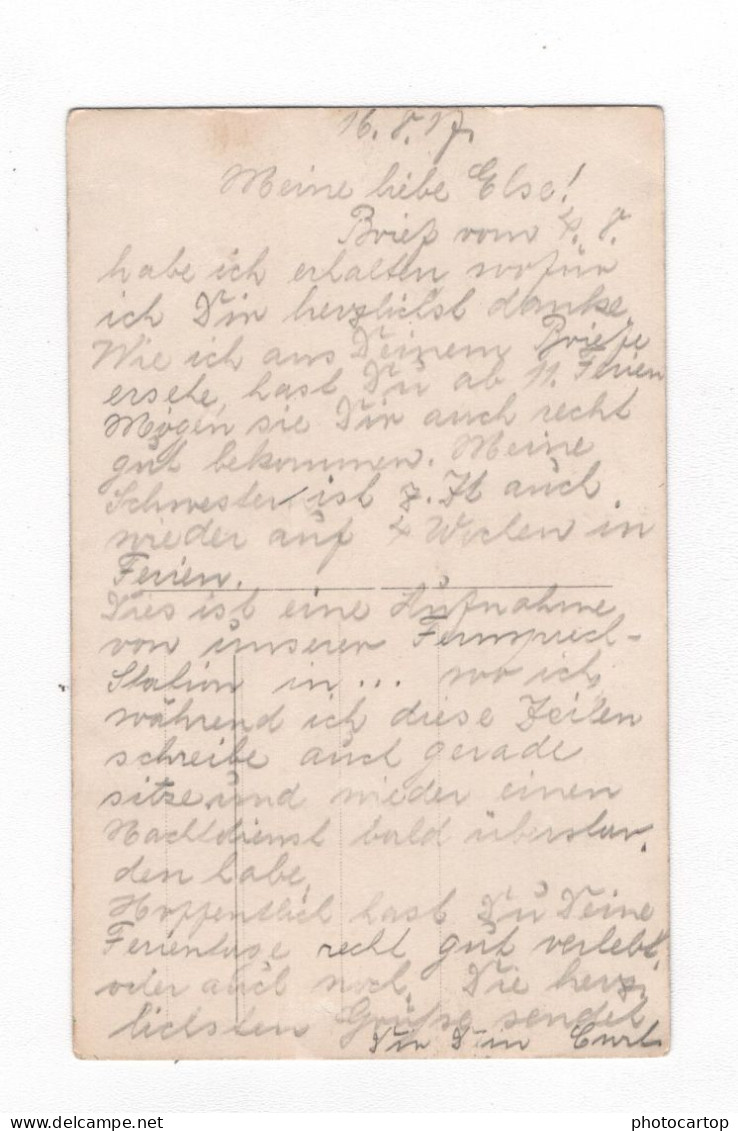 16.8.17.
Meine liebe Else!
Brief vom 4.8.
habe ich erhalten wofür
ich Dir herzlichst danke.
Wie ich aus Deinem Briefe
ersehe, hast Du ab 11. Ferien
Mögen sie Dir auch recht
gut bekommen. Meine
Schwester ist z. Zt auch
wieder auf 4 Wochen in
Ferien.
Dies ist eine Aufnahme
von unserer Fernsprech-
Station in ... wo ich,
während ich diese Zeilen
schreibe auch gerade
sitze und wieder einen
Nachtdienst bald überstan-
den habe.
Hoffentlich hast Du Deine
Ferientage recht gut verlebt,
oder auch noch. Die herz-
lichsten Grüße sendet
Dir Dein Curt
photocartop